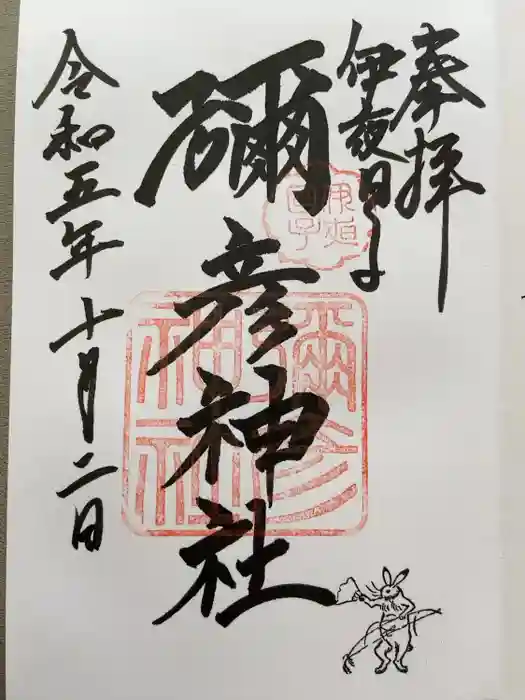 奉拝
伊夜日子
彌彦神社
令和五年十月二日
彌彦
神社